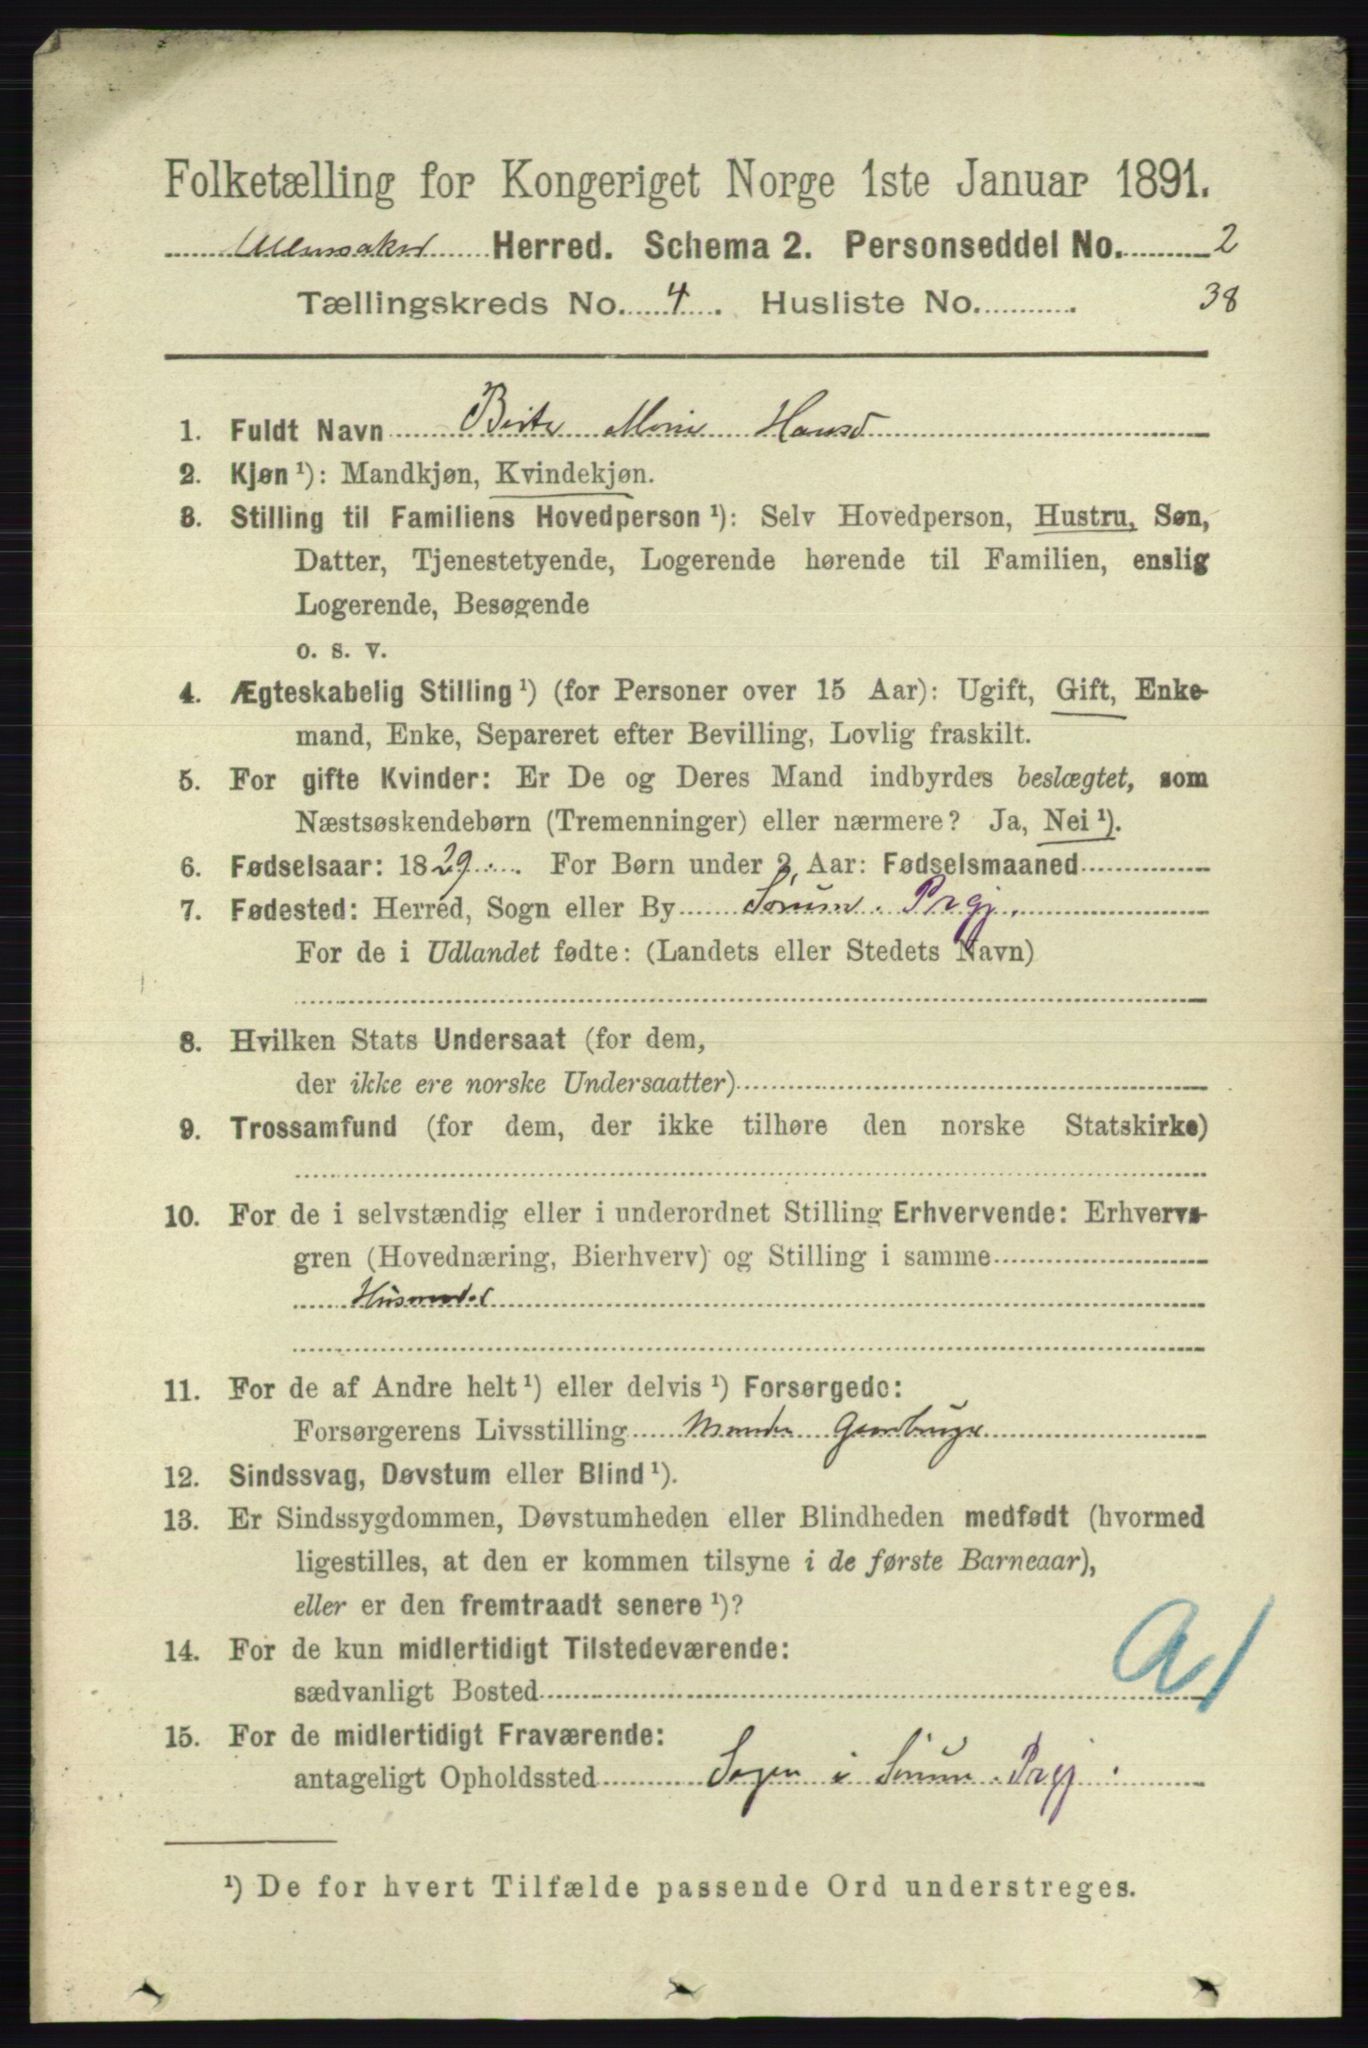 Folketælling for Kongeriget Norge 1ste Januar 1891.
Ullensaker Herred. Schema 2. Personseddel No. 2
Tællingskreds No. 4. Husliste No. 38
1. Fuldt Navn Berte Marie Hansd
2. Kjøn ¹): Mandkjøn, Kvindekjøn.
3. Stilling til Familiens Hovedperson ¹): Selv Hovedperson, Hustru, Søn,
Datter, Tjenestetyende, Logerende hørende til Familien, enslig
Logerende, Besøgende
o. s. v.
4. Ægteskabelig Stilling ¹) (for Personer over 15 Aar): Ugift, Gift, Enke-
mand, Enke, Separeret efter Bevilling, Lovlig fraskilt.
5. For gifte Kvinder: Er De og Deres Mand indbyrdes beslægtet, som
Næstsøskendebørn (Tremenninger) eller nærmere? Ja, Nei ¹).
6. Fødselsaar: 1829. For Børn under 2 Aar: Fødselsmaaned
7. Fødested: Herred, Sogn eller By Sørum. Prgj.
For de i Udlandet fødte: (Landets eller Stedets Navn)
8. Hvilken Stats Undersaat (for dem,
der ikke ere norske Undersaatter)
9. Trossamfund (for dem, der ikke tilhøre den norske Statskirke)
10. For de i selvstændig eller i underordnet Stilling Erhvervende: Erhvervs-
gren (Hovednæring, Bierhverv) og Stilling i samme
11. For de af Andre helt ¹) eller delvis ¹) Forsørgede:
Forsørgerens Livsstilling Gaardbruger
12. Sindssvag, Døvstum eller Blind ¹).
13. Er Sindssygdommen, Døvstumheden eller Blindheden medfødt (hvormed
ligestilles, at den er kommen tilsyne i de første Barneaar),
eller er den fremtraadt senere ¹)?
14. For de kun midlertidigt Tilstedeværende:
sædvanligt Bosted
15. For de midlertidigt Fraværende:
antageligt Opholdssted i Sørum. Prgj.
¹) De for hvert Tilfælde passende Ord understreges.